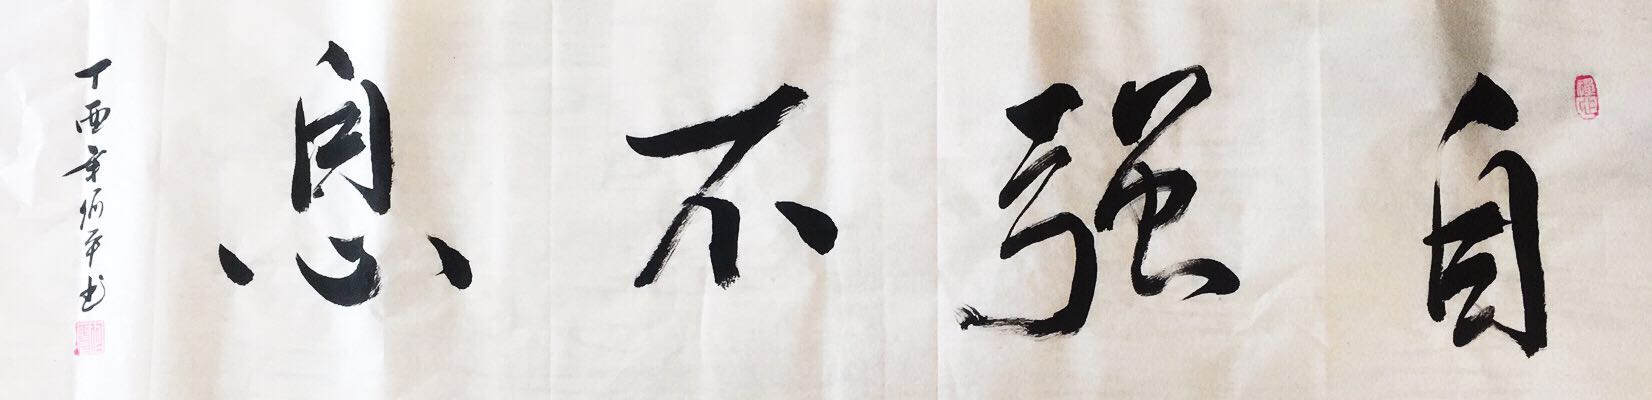 自强不息
丁酉 平书